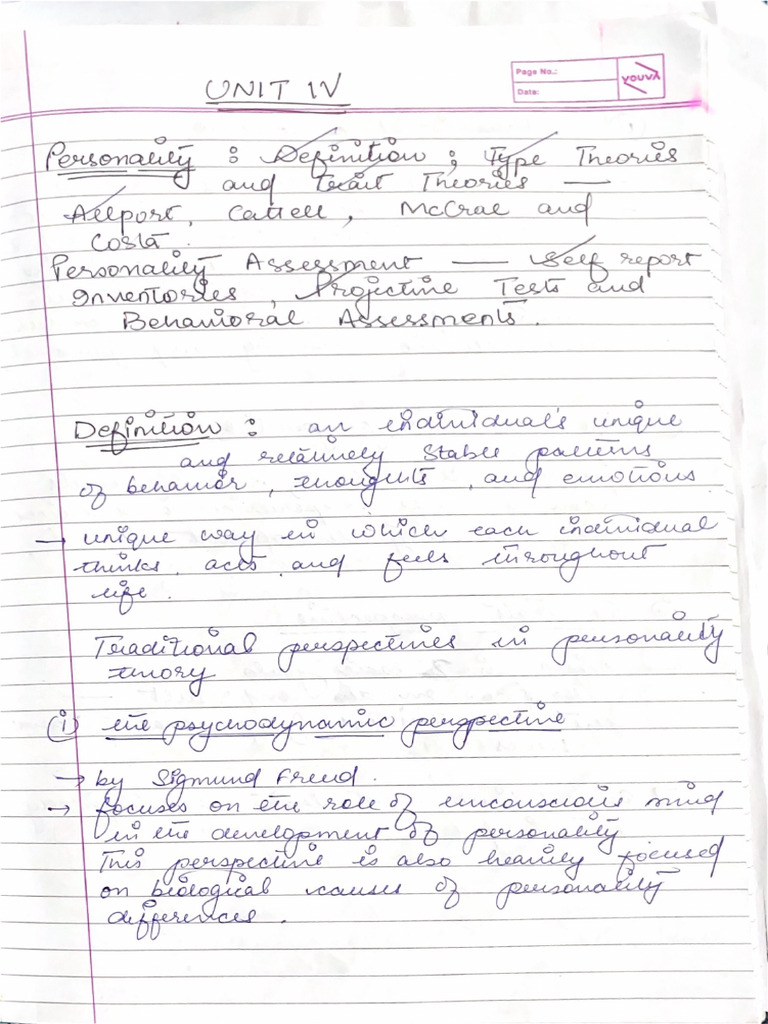 UNIT IV
Page No.:
Date:
YOUVA
Personality : Definition ; Type Theories
and trait Theories —
Allport, Cattell, McCrae and
Costa.
Personality Assessment — Self report
Inventories, Projective Tests and
Behavioral Assessments.
Definition : an individual's unique
and relatively stable patterns
of behavior, thoughts, and emotions
→ unique way in which each individual
thinks, acts and feels throughout
life.
Traditional perspectives in personality
theory
(i) the psychodynamic perspective
→ by Sigmund Freud.
→ focuses on the role of unconscious mind
in the development of personality
This perspective is also heavily focused
on biological causes of personality
differences.